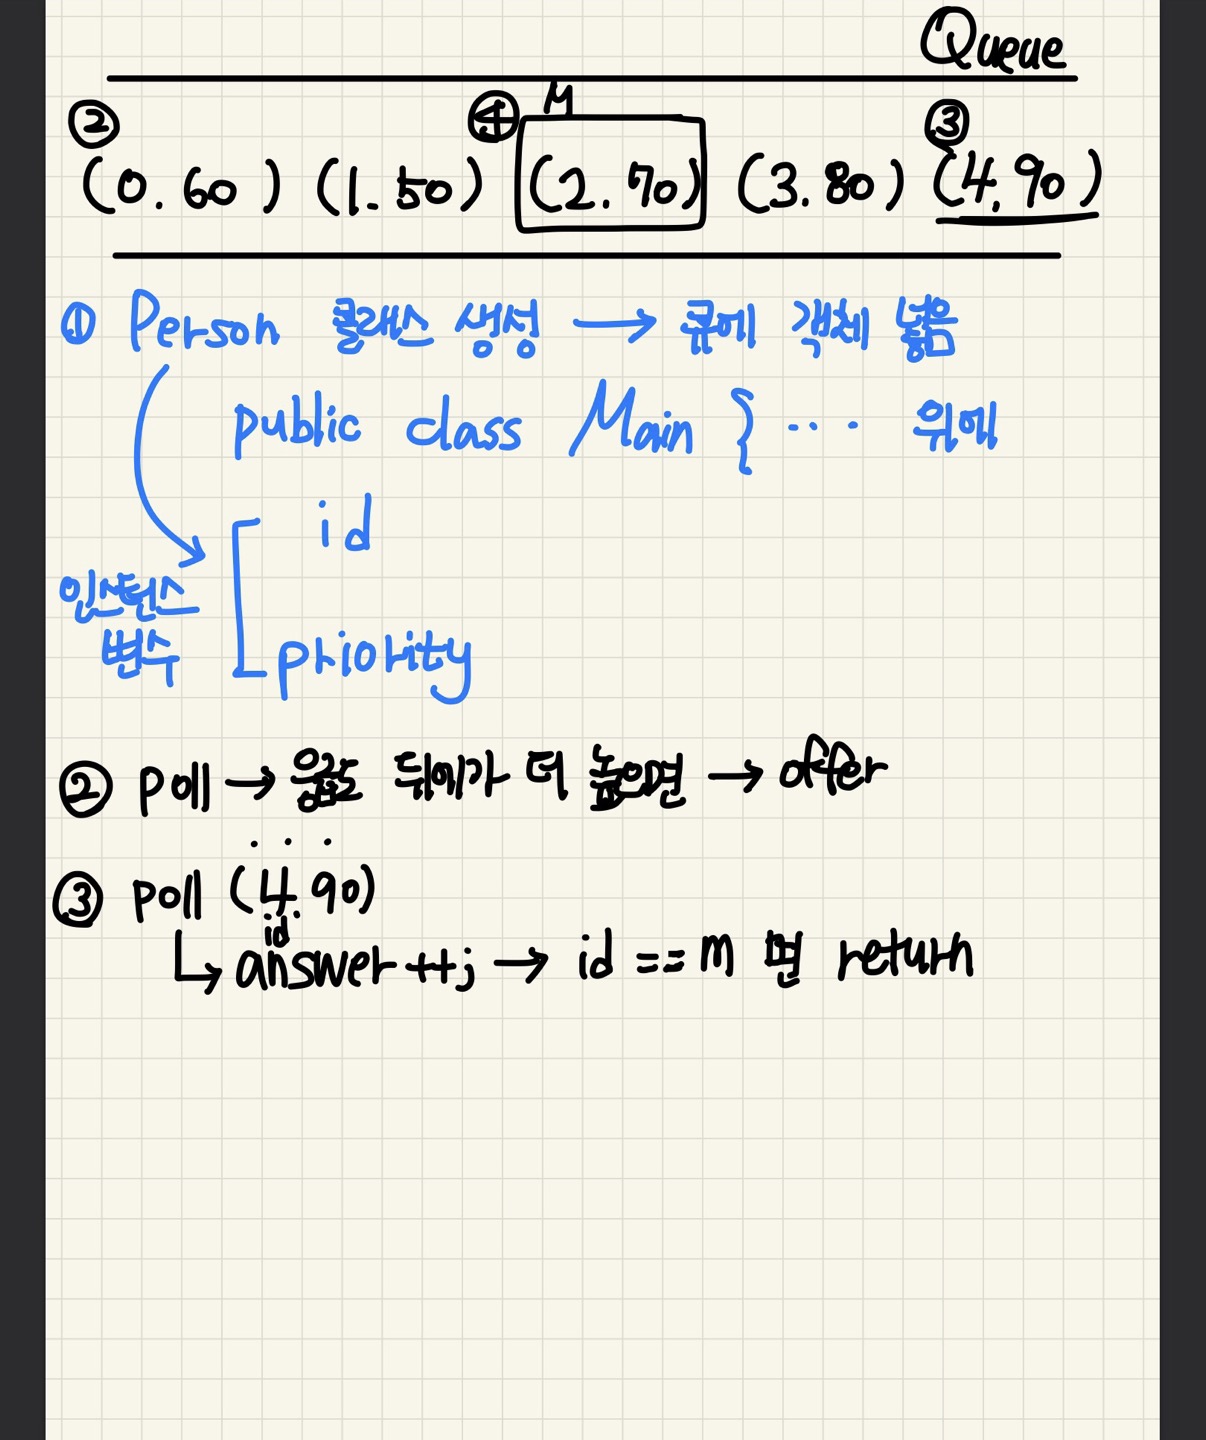 Queue
② ④ M ③
(0.60) (1.50) (2.70) (3.80) (4.90)
① Person 클래스 생성 → 큐에 객체 넣음
public class Main { ... 위에
id
인스턴스
변수
priority
② poll → 뒤에가 더 높으면 → offer
...
③ poll (4.90)
id
answer++; → id == m 면 return